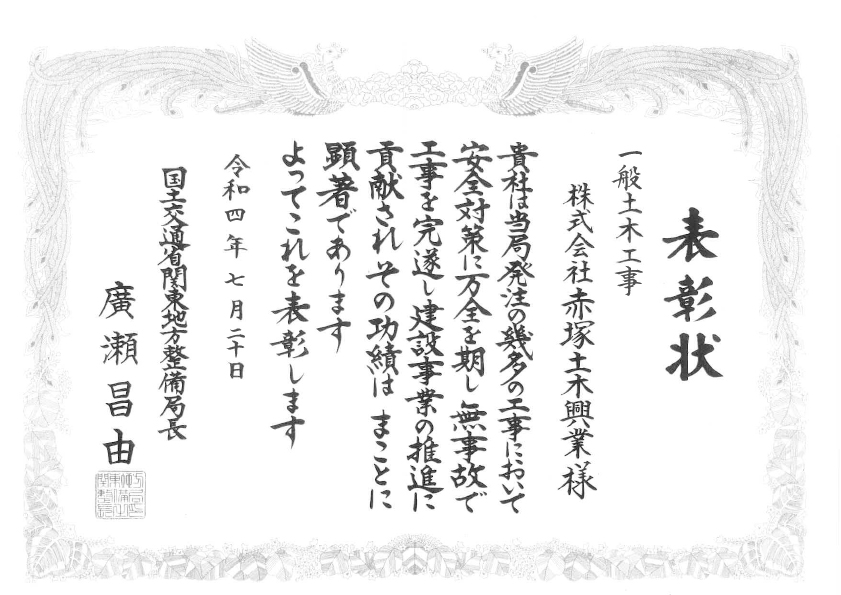 表彰状
一般土木工事
株式会社赤塚土木興業様
貴社は当局発注の幾多の工事において
安全対策に万全を期し無事故で
工事を完遂し建設事業の推進に
貢献されその功績はまことに
顕著であります
よってこれを表彰します
令和四年七月二十日
国土交通省関東地方整備局長
廣瀬昌由